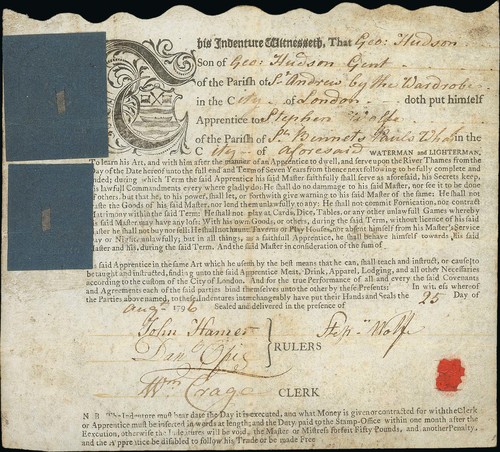 This Indenture Witnesseth, That Geo: Hudson
Son of Geo: Hudson Gent
of the Parish of St Andrew by the Wardrobe
in the City of London doth put himself
Apprentice to Stephen Wolfe
of the Parish of St Bennets Pauls Wharf in the
City of aforesaid WATERMAN and LIGHTERMAN,
To learn his Art, and with him after the manner of an Apprentice to dwell, and serve upon the River Thames from the
Day of the Date hereof unto the full end and Term of Seven Years from thence next following to be fully complete and
ended; during which Term the said Apprentice his said Master faithfully shall serve as aforesaid, his Secrets keep,
his lawfull Commandments every where gladly do: He shall do no damage to his said Master, nor see it to be done
of others, but that he, to his power, shall let, or forthwith give warning to his said Master of the same: He shall not
waste the Goods of his said Master, nor lend them unlawfully to any: He shall not commit Fornication, nor contract
Matrimony within the said Term: He shall not play at Cards, Dice, Tables, or any other unlawfull Games whereby
his said Master may have any loss: With his own Goods, or others, during the said Term, without licence of his said
Master he shall not buy nor sell: He shall not haunt Taverns or Play Houses, nor absent himself from his Master's Service
Day or Night, unlawfully, but in all things, as a faithful Apprentice, he shall behave himself towards his said
Master and his, during the said Term. And the said Master in consideration of the sum of
his said Apprentice in the same Art which he useth by the best means that he can, shall teach and instruct, or cause to
be taught and instructed, finding unto the said Apprentice Meat, Drink, Apparel, Lodging, and all other Necessaries
according to the custom of the City of London. And for the true Performance of all and every the said Covenants
and Agreements each of the said parties bind themselves unto the other by these Presents: In witness whereof
the Parties above named, to these Indentures interchangeably have put their Hands and Seals the 25 Day of
Aug 1796 Sealed and delivered in the presence of
John Hamer Stepn Wolfe
Danl
RULERS
Wm Crage CLERK
N.B. The Indenture must bear date the Day it is executed, and what Money is given or contracted for with the Clerk
or Apprentice must be inserted in words at length; and the Duty paid to the Stamp-Office within one month after the
Execution, otherwise the Indentures will be void, the Master or Mistress forfeit Fifty Pounds, and another Penalty,
and the Apprentice be disabled to follow his Trade or be made Free